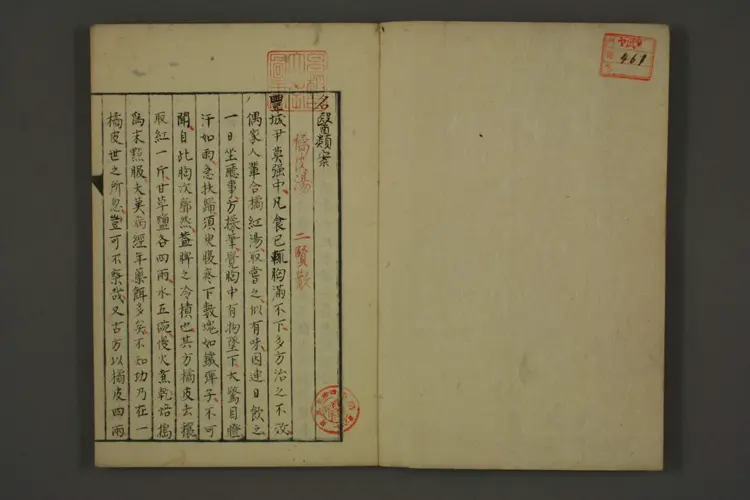 名醫類案
橘皮湯　二賢散
豐城尹莫强中凡食已輒胸滿不下多方治之不效
偶家人輩合橘紅湯取嘗之似有味因連日飲之
一日坐廳事方操筆覺胸中有物墜下大驚目瞪
汗如雨急扶歸須臾腹疼下數塊如鐵彈子不可
聞自此胸次廓然蓋脾之冷積也其方橘皮去穰
取紅一斤甘草鹽各四兩水五碗慢火煮乾焙搗
為末點服夫莫病經年藥餌多矣不知功乃在一
橘皮世之所忽豈可不察哉又古方以橘皮四兩
461